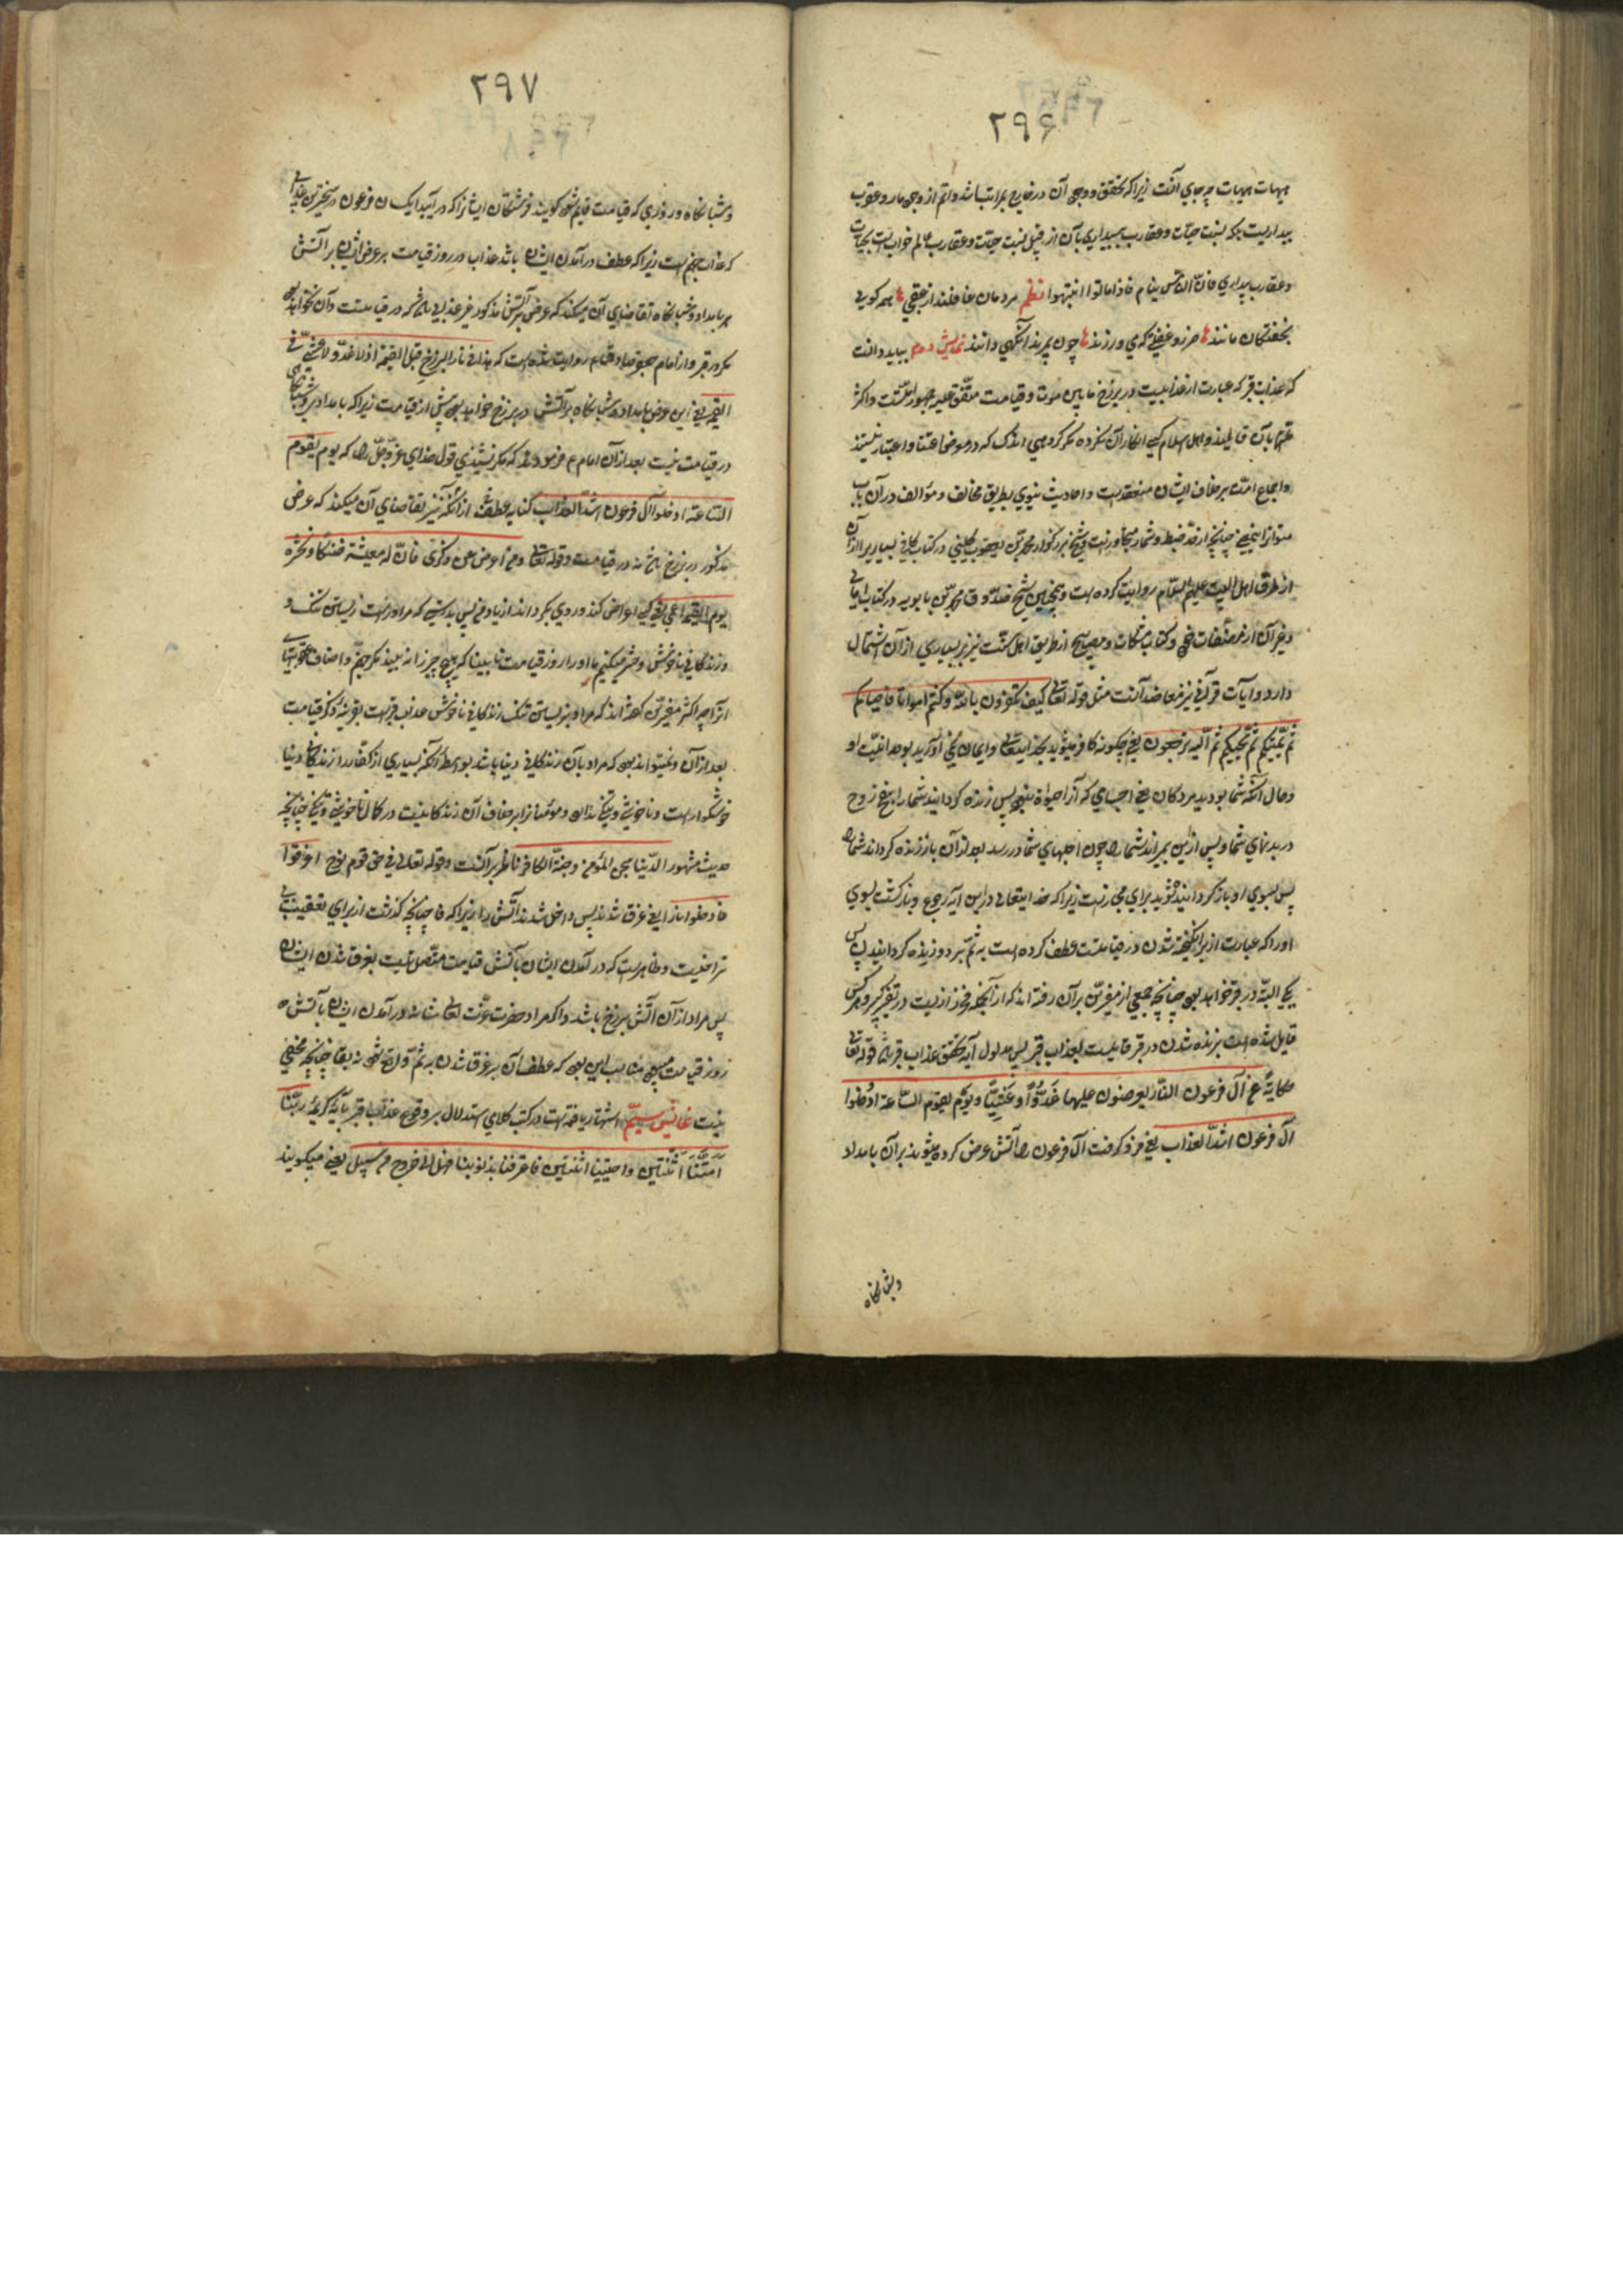 ۲۹۶
هیهات هیهات چه جای آنست زیرا که تحقق و وجود آن در خارج بمراتب اشد و اتم از وجود مار و عقرب
بیداریست بلکه نسبت حیّات و عقارب بیداری بآن از قبیل نسبت حیّات و عقارب عالم خواب است بحیّات
و عقارب بیداری فانّ النّاس ینام فاذا ماتوا انتبهوا نظم مردمان غافلند از عقبی همه گویی
بخفتگان مانند ضرر و غفلتی که می ورزند چون بمیرند آنگهی دانند نمایش دوم بباید دانست
که عذاب قبر که عبارت از عذابیست در برزخ مابین موت و قیامت متّفق علیه جمهور امّتست و اکثر
بآن قایلند و اهل اسلام کسی انکار آن نکرده مگر گروهی اندک که در موضع اعتنا و اعتبار نیستند
و اجماع امّت برخلاف ایشان منعقد است و احادیث نبوی بطریق مخالف و مؤالف در آن باب
متواتر المعنی چنانچه از حدّ ضبط و شمار متجاوز است و شیخ بزرگوار محمد بن یعقوب کلینی در کتاب کافی بسیاری را از آن
از طرق اهل البیت علیهم السّلام روایت کرده است و همچنین شیخ صدّوق محمد بن بابویه در کتاب امالی
و غیر آن از مصنّفات خود و کتاب مشکات و مصابیح از طریق اهل سنّت نیز بر بسیاری از آن اشتمال
دارد و آیات قرآنی نیز معاضد آنست مثل قوله تعالی کیف تکفرون بالله و کنتم امواتا فاحیاکم
ثمّ یمیتکم ثمّ یحییکم ثمّ الیه ترجعون یعنی چگونه کافر میشوید بخدایتعالی و ایمان نمی آورید بوحدانیّت او
و حال آنکه شما بودید مردگان یعنی اجسامی که آنرا حیوة نبود پس زنده گردانید شما را بنفخ روح
در بدنهای شما و پس ازین بمیراند شما را چون اجلهای شما در رسد بعد از آن باز زنده گرداند شما را
پس بسوی او باز گردانیده شوید برای مجازات زیرا که خدایتعالی در این آیه رجوع و بازگشت بسوی
او را که عبارت از برانگیخته شدن در قیامتست عطف کرده است به ثمّ بر دو زنده گردانیدن پس
یکی البتّه در قبر خواهد بود چنانچه جمعی از مفسّرین بر آن رفته اند که از آنجمله فخر رازیست در تفسیر کبیر و هر کس
قایل شده است بزنده شدن در قبر قایلست بعذاب قبر پس مدلول آیه تحقق عذاب قبر باشد و قوله تعالی
حکایةً عن آل فرعون النّار یعرضون علیها غدوّاً و عشیّاً و یوم تقوم السّاعة ادخلوا
آل فرعون اشدّ العذاب یعنی فرو گرفت آل فرعون را آتش عرض کرده میشوند بر آن بامداد
و شبانگاه
۲۹۷
و شبانگاه و روزی که قیامت قایم شود گویند فرشتگان ایشانرا که در آیید ای کسان فرعون در سخترین عذابی
که عذاب جهنم است زیرا که عطف در آمدن ایشان باشد عذاب در روز قیامت بر عرض ایشان بر آتش
در بامداد و شبانگاه تقاضای آن میکند که عرض بر آتش مذکور غیر عذابی باشد که در قیامتست و آن نخواهد بود
مگر در قبر و از امام جعفر صادق علیه السلام روایت شده است که هذا فی نار البرزخ قبل القیمة اذ لا غدوّ و لا عشیّ فی
القیمة یعنی این عرض بامداد و شبانگاه بر آتش در برزخ خواهد بود پیش از قیامت زیرا که بامداد و شبانگاهی
در قیامت نیست بعد از آن امام ع فرمودند که مگر نشنیدی قول خدای عزّ و جلّ را که یوم تقوم
السّاعة ادخلوا آل فرعون اشدّ العذاب کنایه عطف از آنکه نیز تقاضای آن میکند که عرض
مذکور در برزخ باشد نه در قیامت و قوله تعالی و من اعرض عن ذکری فانّ له معیشة ضنکاً و نحشره
یوم القیمة اعمی یعنی کسی اعراض کند و روی بگرداند از یاد من پس بدرستی که مر او راست زیستن تنک و
و زندگانی ناخوش و حشر میکنیم ما او را روز قیامت نابینا که هیچ چیز را نبیند مگر جهنّم و اصناف عقوبتهای
آنرا چه اکثر مفسّرین گفته اند که مراد بزیستن تنک و زندگانی ناخوش عذاب قبر است بقرینه ذکر قیامت
بعد از آن و نمیتواند بود که مراد بآن زندگانی دنیا باشد بواسطه آنکه بسیاری از کفّار را زندگانی دنیا
خوشگوار است و ناخوشی و تنگی ندارند و مؤمنانرا بر خلاف آن زندگانیست در کمال ناخوشی و تنگی چنانچه
حدیث مشهور الدّنیا سجن المؤمن و جنّة الکافر ناظر بر آنست و قوله تعالی فی حق قوم نوح اغرقوا
فادخلوا ناراً یعنی غرق شدند پس داخل شدند آتش را زیرا که فا چنانچه گذشت از برای تعقیب بی
تراخیست و ظاهر است که در آمدن ایشان بآتش قیامت متّصل نیست بغرق شدن ایشان
پس مراد از آن آتش برزخ باشد و اگر مراد حضرت عزّت تعالی شانه در آمدن ایشان بآتش
روز قیامت میبود مناسب این بود که عطف آن بر غرق شدن به ثمّ واقع شود نه بفا چنانچه مخفی
نیست نمایش سیّم اشتهار یافته است در کتب کلامی استدلال بر وقوع عذاب قبر بآیه کریمه ربّنا
امتّنا اثنتین و احییتنا اثنتین فاعترفنا بذنوبنا فهل الی خروج من سبیل یعنی میگویند